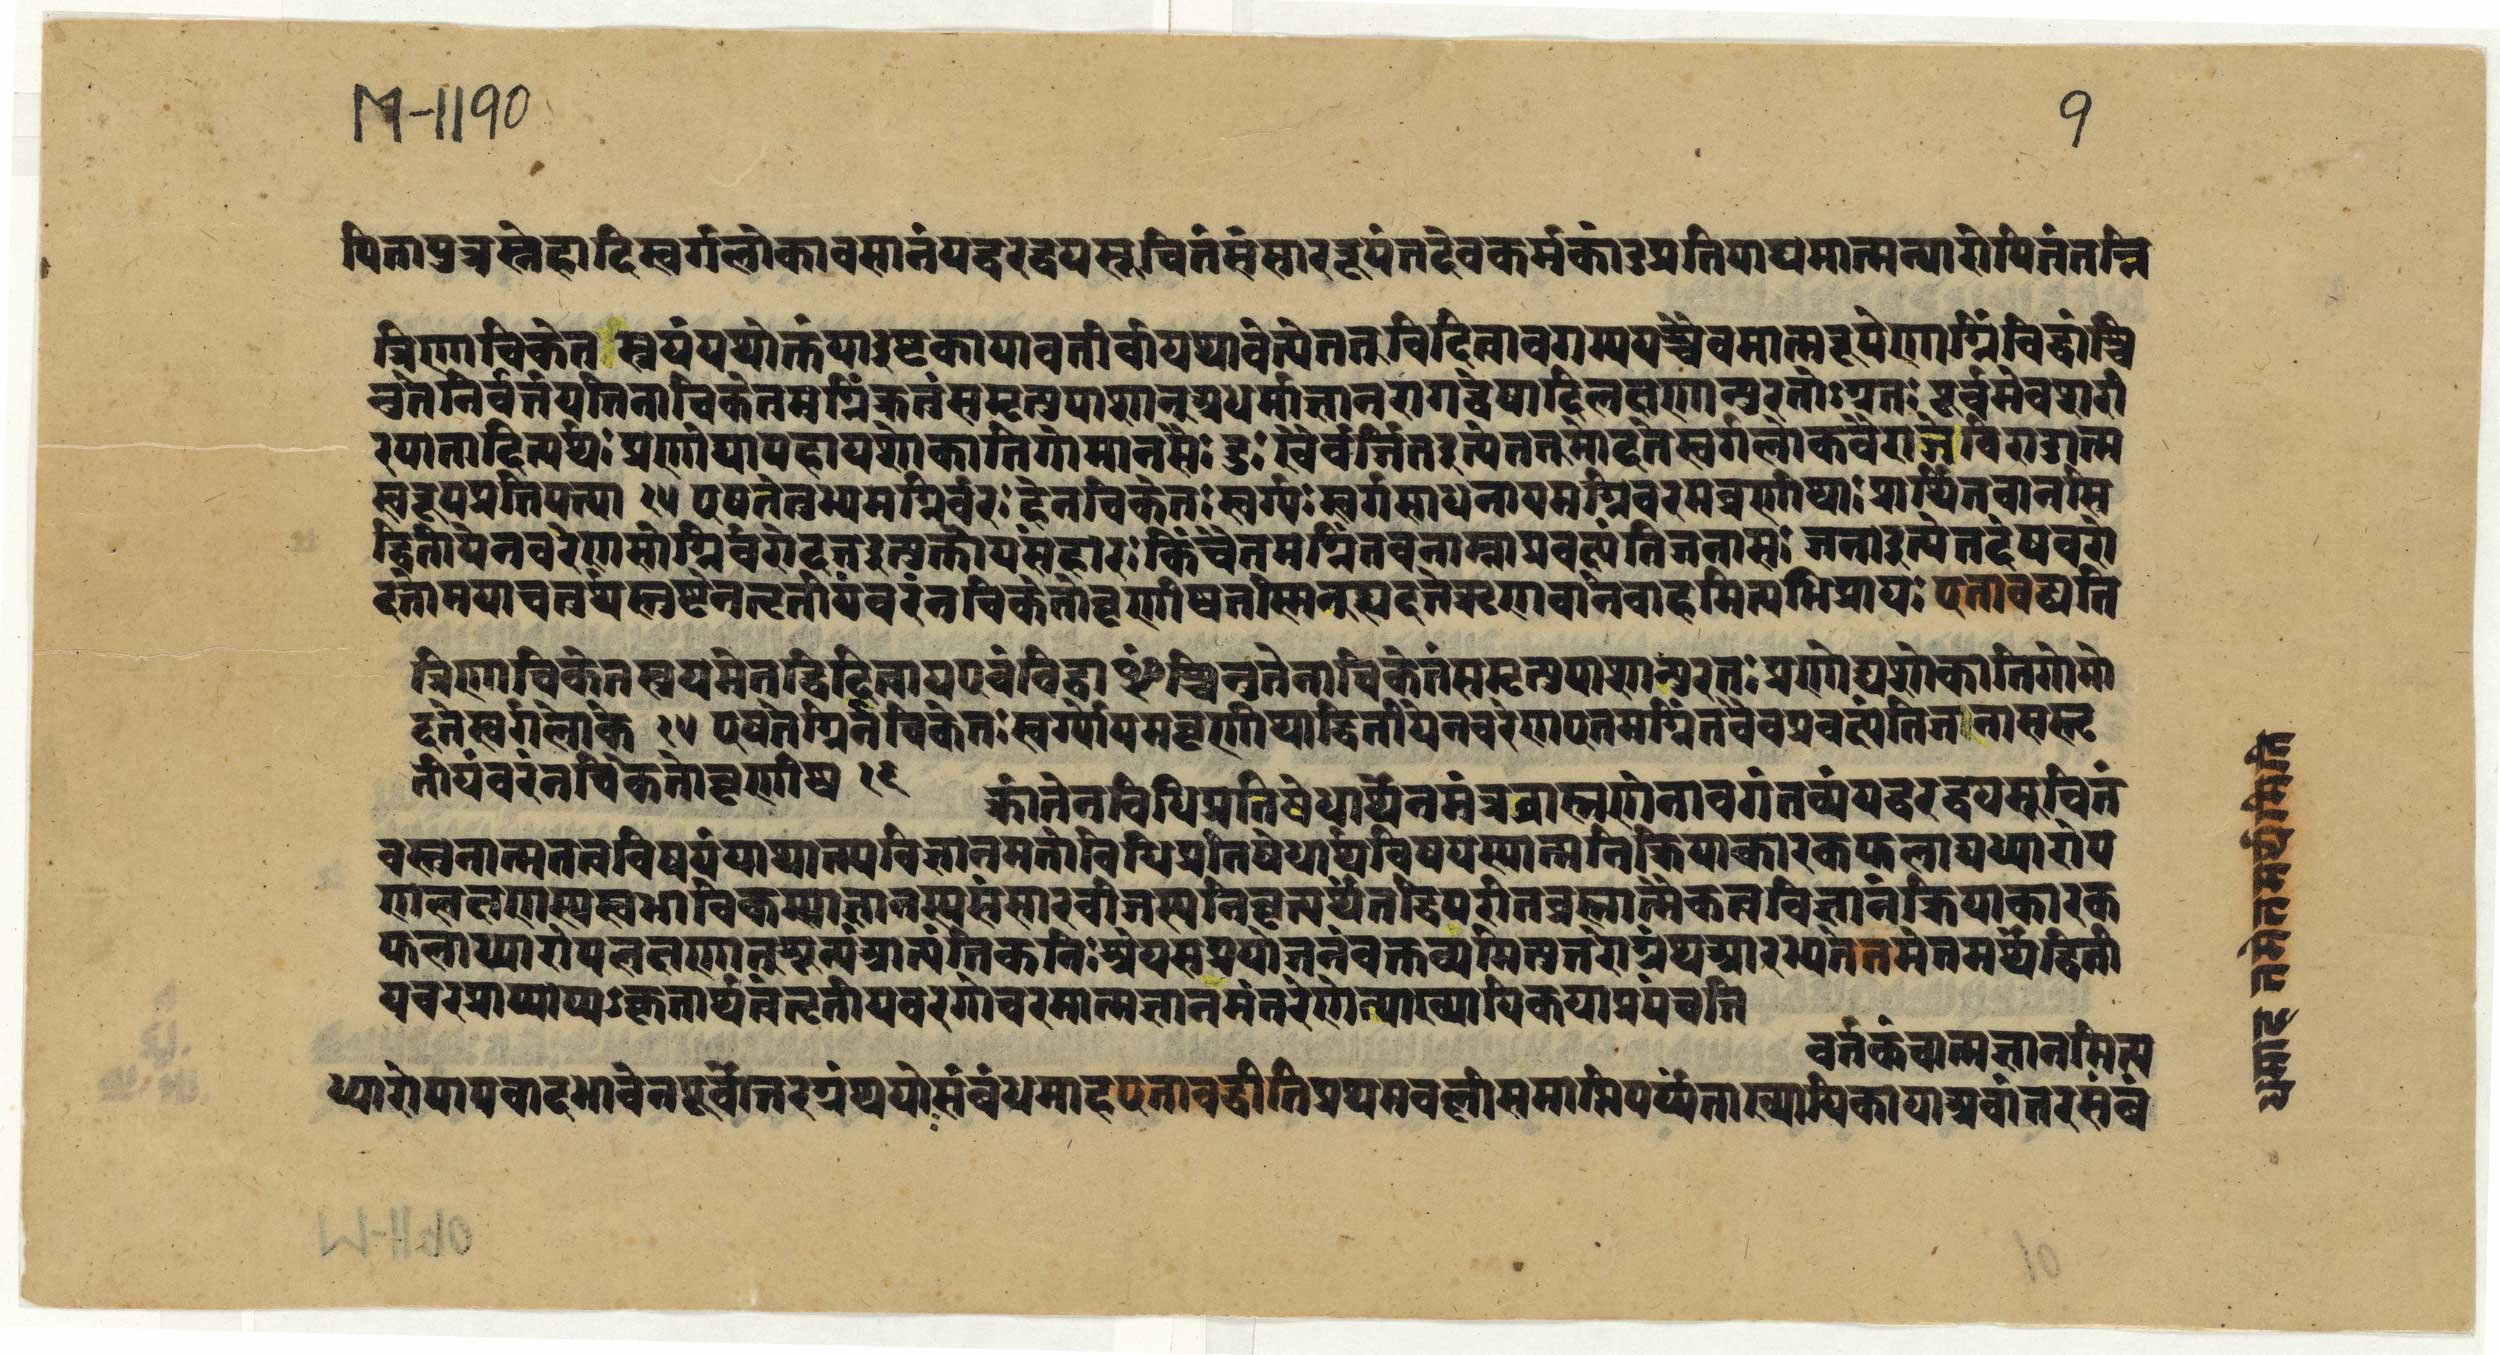 M-1190
9
पितापुत्रस्नेहादिस्वर्गलोकावसानंयद्वरद्वयसूचितंसंसाररूपंतदेवकर्मकांडप्रतिपाद्यमात्मन्यारोपितंतन्नि
त्रिणाचिकेतस्त्रयंयथोक्तंयाइष्टकायावतीर्वायथावेत्येतत् विदित्वावगम्ययश्चैवमात्मरूपेणाग्निंविद्वांश्चि
नुतेनिर्वर्तयतिनाचिकेतमग्निंक्रतुंसमृत्युपाशानधर्माज्ञानरागद्वेषादिलक्षणान्पुरतोऽग्रतः पूर्वमेवशरी
रपातादित्यर्थः प्रणोद्यापहायशोकातिगोमानसैः दुः खैर्वर्जितइत्येतत् मोदतेस्वर्गलोकेवैराजेविराडात्म
स्वरूपप्रतिपत्त्या १८ एषतेतुभ्यमग्निर्वरः हेनचिकेतः स्वर्ग्यः स्वर्गसाधनोयमग्निंवरमवृणीथाः प्रार्थितवानसि
द्वितीयेनवरेणसोग्निर्वरोदत्तइत्युक्तोपसंहारः किंचैतमग्निंतवनाम्नाप्रवक्ष्यंतिजनासः जनाइत्येतदेषवरो
दत्तोमयाचतुर्थस्तुष्टेनतृतीयंवरंनचिकेतोवृणीष्वतस्मिन्ह्यदत्तेऋणवानेवाहमित्यभिप्रायः एतावद्ध्यति
त्रिणाचिकेतस्त्रयमेतद्विदित्वायएवंविद्वाꣳश्चिनुतेनाचिकेतंसमृत्युपाशान्पुरतः प्रणोद्यशोकातिगोमो
दतेस्वर्गलोके १८ एषतेग्निर्नचिकेतः स्वर्ग्योयमवृणीथाद्वितीयेनवरेणएतमग्निंतवैवप्रवक्ष्यंतिजनासस्तृ
तीयंवरंनचिकेतोवृणीष्व १९ क्रांतेनविधिप्रतिषेधार्थेनमंत्रब्राह्मणेनावगंतव्यंयद्वरद्वयसूचितं
वस्तुनात्मतत्वविषयंयाथात्म्यविज्ञानमतोविधिप्रतिषेधार्थविषयस्यात्मनिक्रियाकारकफलाद्यध्यारोप
णलक्षणस्यस्वभाविकस्याज्ञानस्यसंसारबीजस्यनिवृत्यर्थंतद्विपरीतब्रह्मात्मैकत्वविज्ञानंक्रियाकारक
फलाध्यारोपलक्षणशून्यंआत्यंतिकनिः श्रेयसप्रयोजनंवक्तव्यमित्युत्तरोग्रंथआरभ्यतेतमेतमर्थंद्विती
यवरप्राप्त्याप्यऽकृतार्थत्वंतृतीयवरगोचरमात्मज्ञानमंतरेणेत्याख्यायिकयाप्रपंचयति
वर्तकंचात्मज्ञानमित्य
ध्यारोपापवादभावेनपूर्वोत्तरग्रंथयोः संबंधमाहएतावद्धीतिप्रथमवल्लीसमाप्तिपर्यंताख्यायिकायाअवांतरसंबं